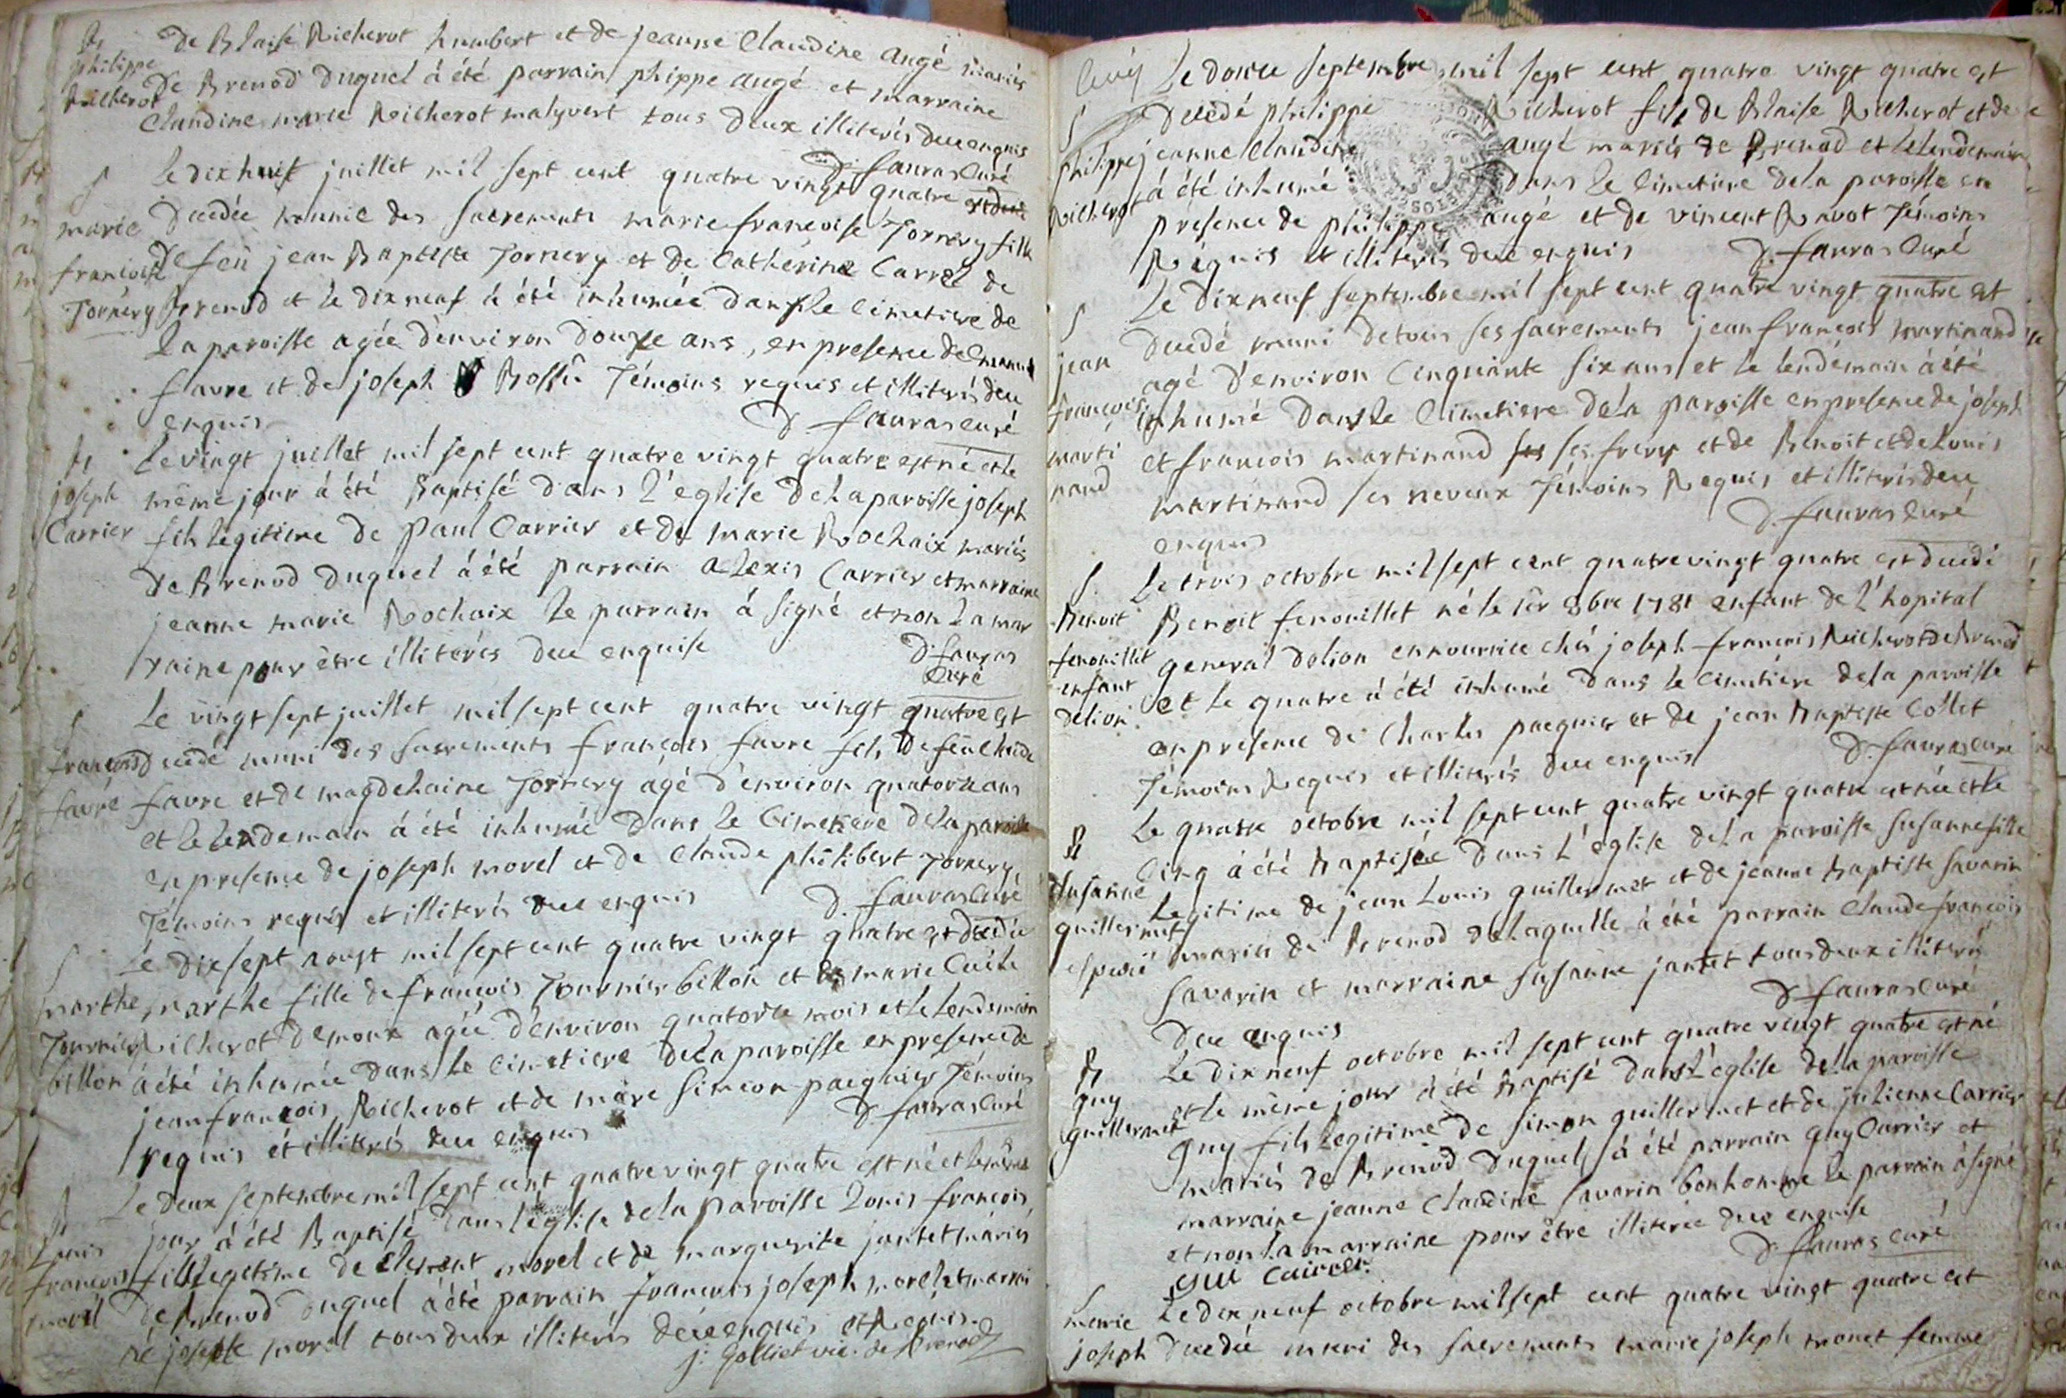 B
philippe
Richerot
de Blaise Richerot humbert et de jeanne Claudine augé mariés
de Brenod duquel à été parrain phippe augé et marraine
Claudine marie Richerot malyvert tous deux illiterés duee enquis
D. fauras Curé
S
marie
francoise
Tornery
Le dix huit juillet mil sept cent quatre vingt quatre
decedée munie des sacrements marie francoise Tornery fille
de feu jean Baptiste Tornery et de Catherine Carrel de
Brenod et le dix neuf à été inhumée dans le Cimetiere de
la paroisse agée d'environ douze ans, en presence de
favre et de joseph Bossu Témoins requis et illiterés duee
enquis
D. fauras curé
B
joseph
Carrier
Le vingt juillet mil sept cent quatre vingt quatre est né et le
même jour à été Baptisé dans l'eglise de la paroisse joseph
fils legitime de Paul Carrier et de marie Rochaix mariés
de Brenod duquel à été parrain alexis Carrier et marraine
jeanne marie Rochaix le parrain à signé et non la mar
raine pour être illiterés duee enquise
D. fauras
Curé
S
francois
favre
Le vingt sept juillet mil sept cent quatre vingt quatre est
decedé muni des sacrements francois favre fils de feu Claude
favre et de magdelaine Tornery agé d'environ quatorze ans
et le lendemain à été inhumé dans le Cimetiere de la paroisse
en presence de joseph morel et de Claude philibert Tornery
Témoins requis et illiterés duee enquis
D. fauras Curé
S
marthe
Tournier
billon
Le dix sept aoust mil sept cent quatre vingt quatre est decedée
marthe fille de francois Tournier billon et de marie Cecile
Richerot demoux agée d'environ quatorze mois et le lendemain
à été inhumée dans le Cimetiere de la paroisse en presence de
jean francois Richerot et de marc Simeon paequier Témoins
requis et illiterés duee enquis
D. fauras Curé
B
Louis
francois
morel
Le deux septembre mil sept cent quatre vingt quatre est né et le même
jour à été Baptisé dans l'eglise de la paroisse Louis francois
fils legitime de Clement morel et de marguerite jantet mariés
de Brenod duquel à été parrain francois joseph morel et marrai
né josephte morel tous deux illiterés duee enquis et Requis.
j. Golliet vic. de Brenod
S
philippe
Richerot
Le douze septembre mil sept cent quatre vingt quatre est
decedé philippe Richerot fils de Blaise Richerot et de
jeanne Claudine augé mariés de Brenod et le lendemain
à été inhumé dans le Cimetiere de la paroisse en
presence de philippe augé et de vincent Ravot Témoins
Requis et illiterés duee enquis
D. fauras Curé
S
jean
francois
marti
nand
Le dix neuf septembre mil sept cent quatre vingt quatre est
decedé muni de tous ses sacrements jean francois martinand
agé d'environ Cinquante six ans et le lendemain à été
inhumé dans le Cimetiere de la paroisse en presence de joseph
et francois martinand ses freres et de Benoit et de Louis
martinand ses neveux Témoins Requis et illiterés duee
enquis
D. fauras Curé
S.
Benoit
fenouillet
enfant
de lion
Le trois octobre mil sept cent quatre vingt quatre est decedé
Benoit fenouillet né le 1er 8bre 1781 enfant de l'hopital
general de lion en nourrice chés joseph francois Richerot de Brenod
et le quatre à été inhumé dans le Cimetiere de la paroisse
en presence de Charles paequier et de jean Baptiste Collet
Témoins Requis et illiterés duee enquis
D. fauras Curé
B
Susanne
guillermet
Le quatre octobre mil sept cent quatre vingt quatre est née et le
Cinq à été Baptisée dans l'eglise de la paroisse Susanne fille
Legitime de jean Louis guillermet et de jeanne Baptiste Savarin
mariés de Brenod de laquelle à été parrain Claude francois
Savarin et marraine Susanne jantet tous deux illiterés
duee enquis
D fauras Curé
B
guy
guillermet
Le dix neuf octobre mil sept cent quatre vingt quatre est né
et le même jour à été Baptisé dans l'eglise de la paroisse
guy fils legitime de simon guillermet et de julienne Carrier
mariés de Brenod duquel à été parrain guy Carrier et
marraine jeanne Claudine Savarin bonhomme le parrain à signé
et non la marraine pour être illiterée duee enquise
D. fauras curé
gui Cairier
marie
joseph
Le dix neuf octobre mil sept cent quatre vingt quatre est
decedée muni des sacrements marie joseph monet femme